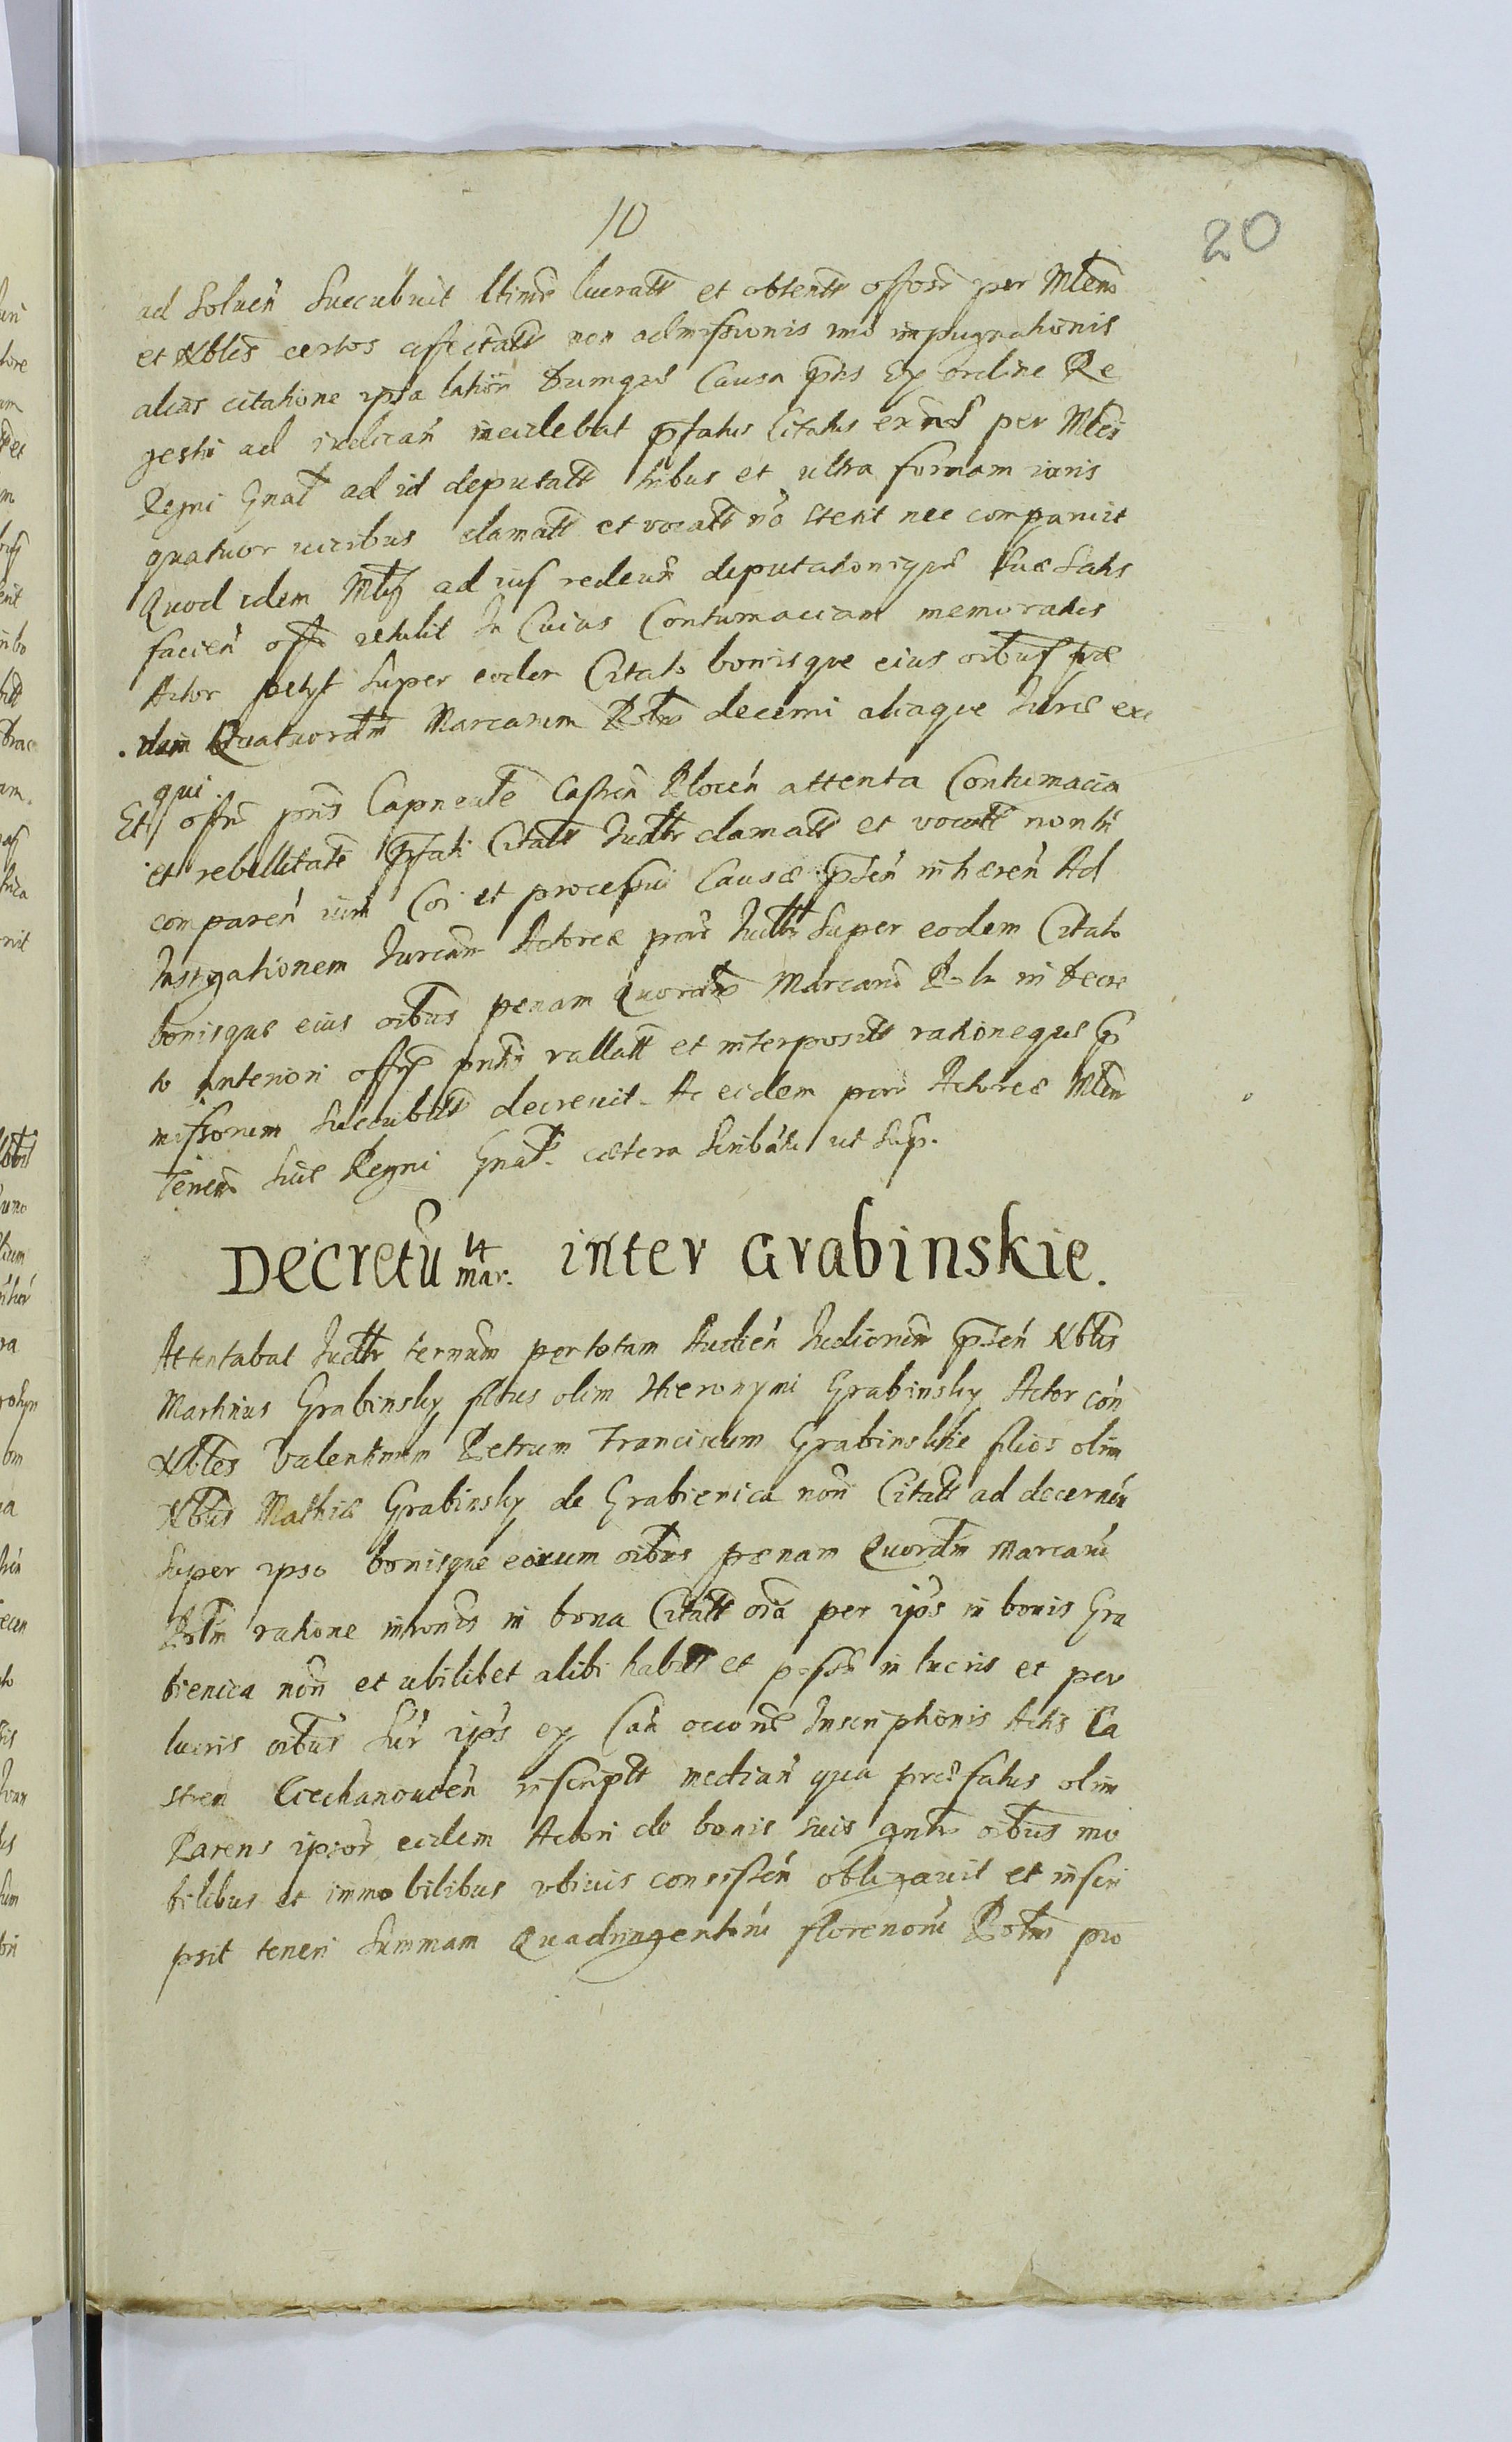 10
20
ad Soluen̄ Succubuit ltīme lucratt et obtentt offōse per Mlem
et Nbles certos affectatt non admissionis imo impugnationis
alias citatione ipsa latior Dumque Causa p̄ns Ex ordine Re
gestri ad iudican̄ incidebat p̄fatus Citatus per Mlem
Regni Gnal̄ ad id deputatt tribus et ultra formam iuris
quatuor vicibus clamatt et vocatt nō Stetit nec comparuit
Quod idem Mlis ad ius redeun̄ deputationique suæ Satis
facien̄ offo retulit In Cuius Contumaciam memoratus
Actor petyt super eodem Citato bonisque eius oībus pæ
nam Quatuordm Marcarum Polm decerni aliaque Juris exe
qui.
Et offm p̄ns Capneale Castren̄ Plocen̄ attenta Contumacia
et rebellitate p̄fati Citatt Judltr clamatt et vocatt non
comparen̄ iuri Coi et processui Causæ p̄sen̄ inhæren̄ Ad
Instigationem Actoreæ Judltr Super eodem Citato
bonisque eius oībus penam Quordm Marcarū Polm in Decre
to anteriori offῡ pntis vallatt et interpositt rationeque p̄
missorum Succubitt decreuit. Ac eidem parti Actoreæ Mlem
Regni Gnal̄. cætera scribātr ut Supr.
Decretū 14 mar. inter Grabinskie.
Attentabat Judltr ternum per totam Audien̄ Judiciorum p̄sen̄ Nblis
Martinus Grabinsky filius olim Hieronymi Grabinsky Actor con̄
Nbles Valentinum Petrum Franciscum Grabinskie filios olim
Nblis Mathiæ Grabinsky de Grabienica nom̄ Citatt ad decernen̄
Super ipso bonisque eorum oībus pænam Quordm Marcarū
Polm ratione intromis in bona Citatt oīa per ipōs in bonis Gra
bienica nom̄ et ubilibet alibi habitt et possess in lucris et per
lucris oībus Sup ipōs ex Cau occōne Inscriptionis Actis Ca
stren Ciechanouien̄ inscriptt median̄ qua præfatus olim
Parens ipsor eidem Actori de bonis suis gntr oībus mo
bilibus et immobilibus vbiuis consisten̄ obligauit et inscri
psit teneri Summam Quadringentorū florenorū Polm pro